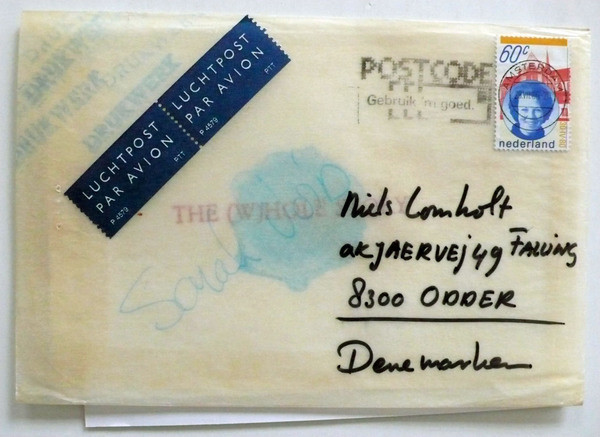 LUCHTPOST
PAR AVION
P 4579
PTT
LUCHTPOST
PAR AVION
P 4579
PTT
POSTCODE
Gebruik 'm goed.
60c
AMSTERDAM
nederland
THE (W)HOLE
Sarah
Niels Lomholt
AKJAERVEJ 49 FALLING
8300 ODDER
Denemarken